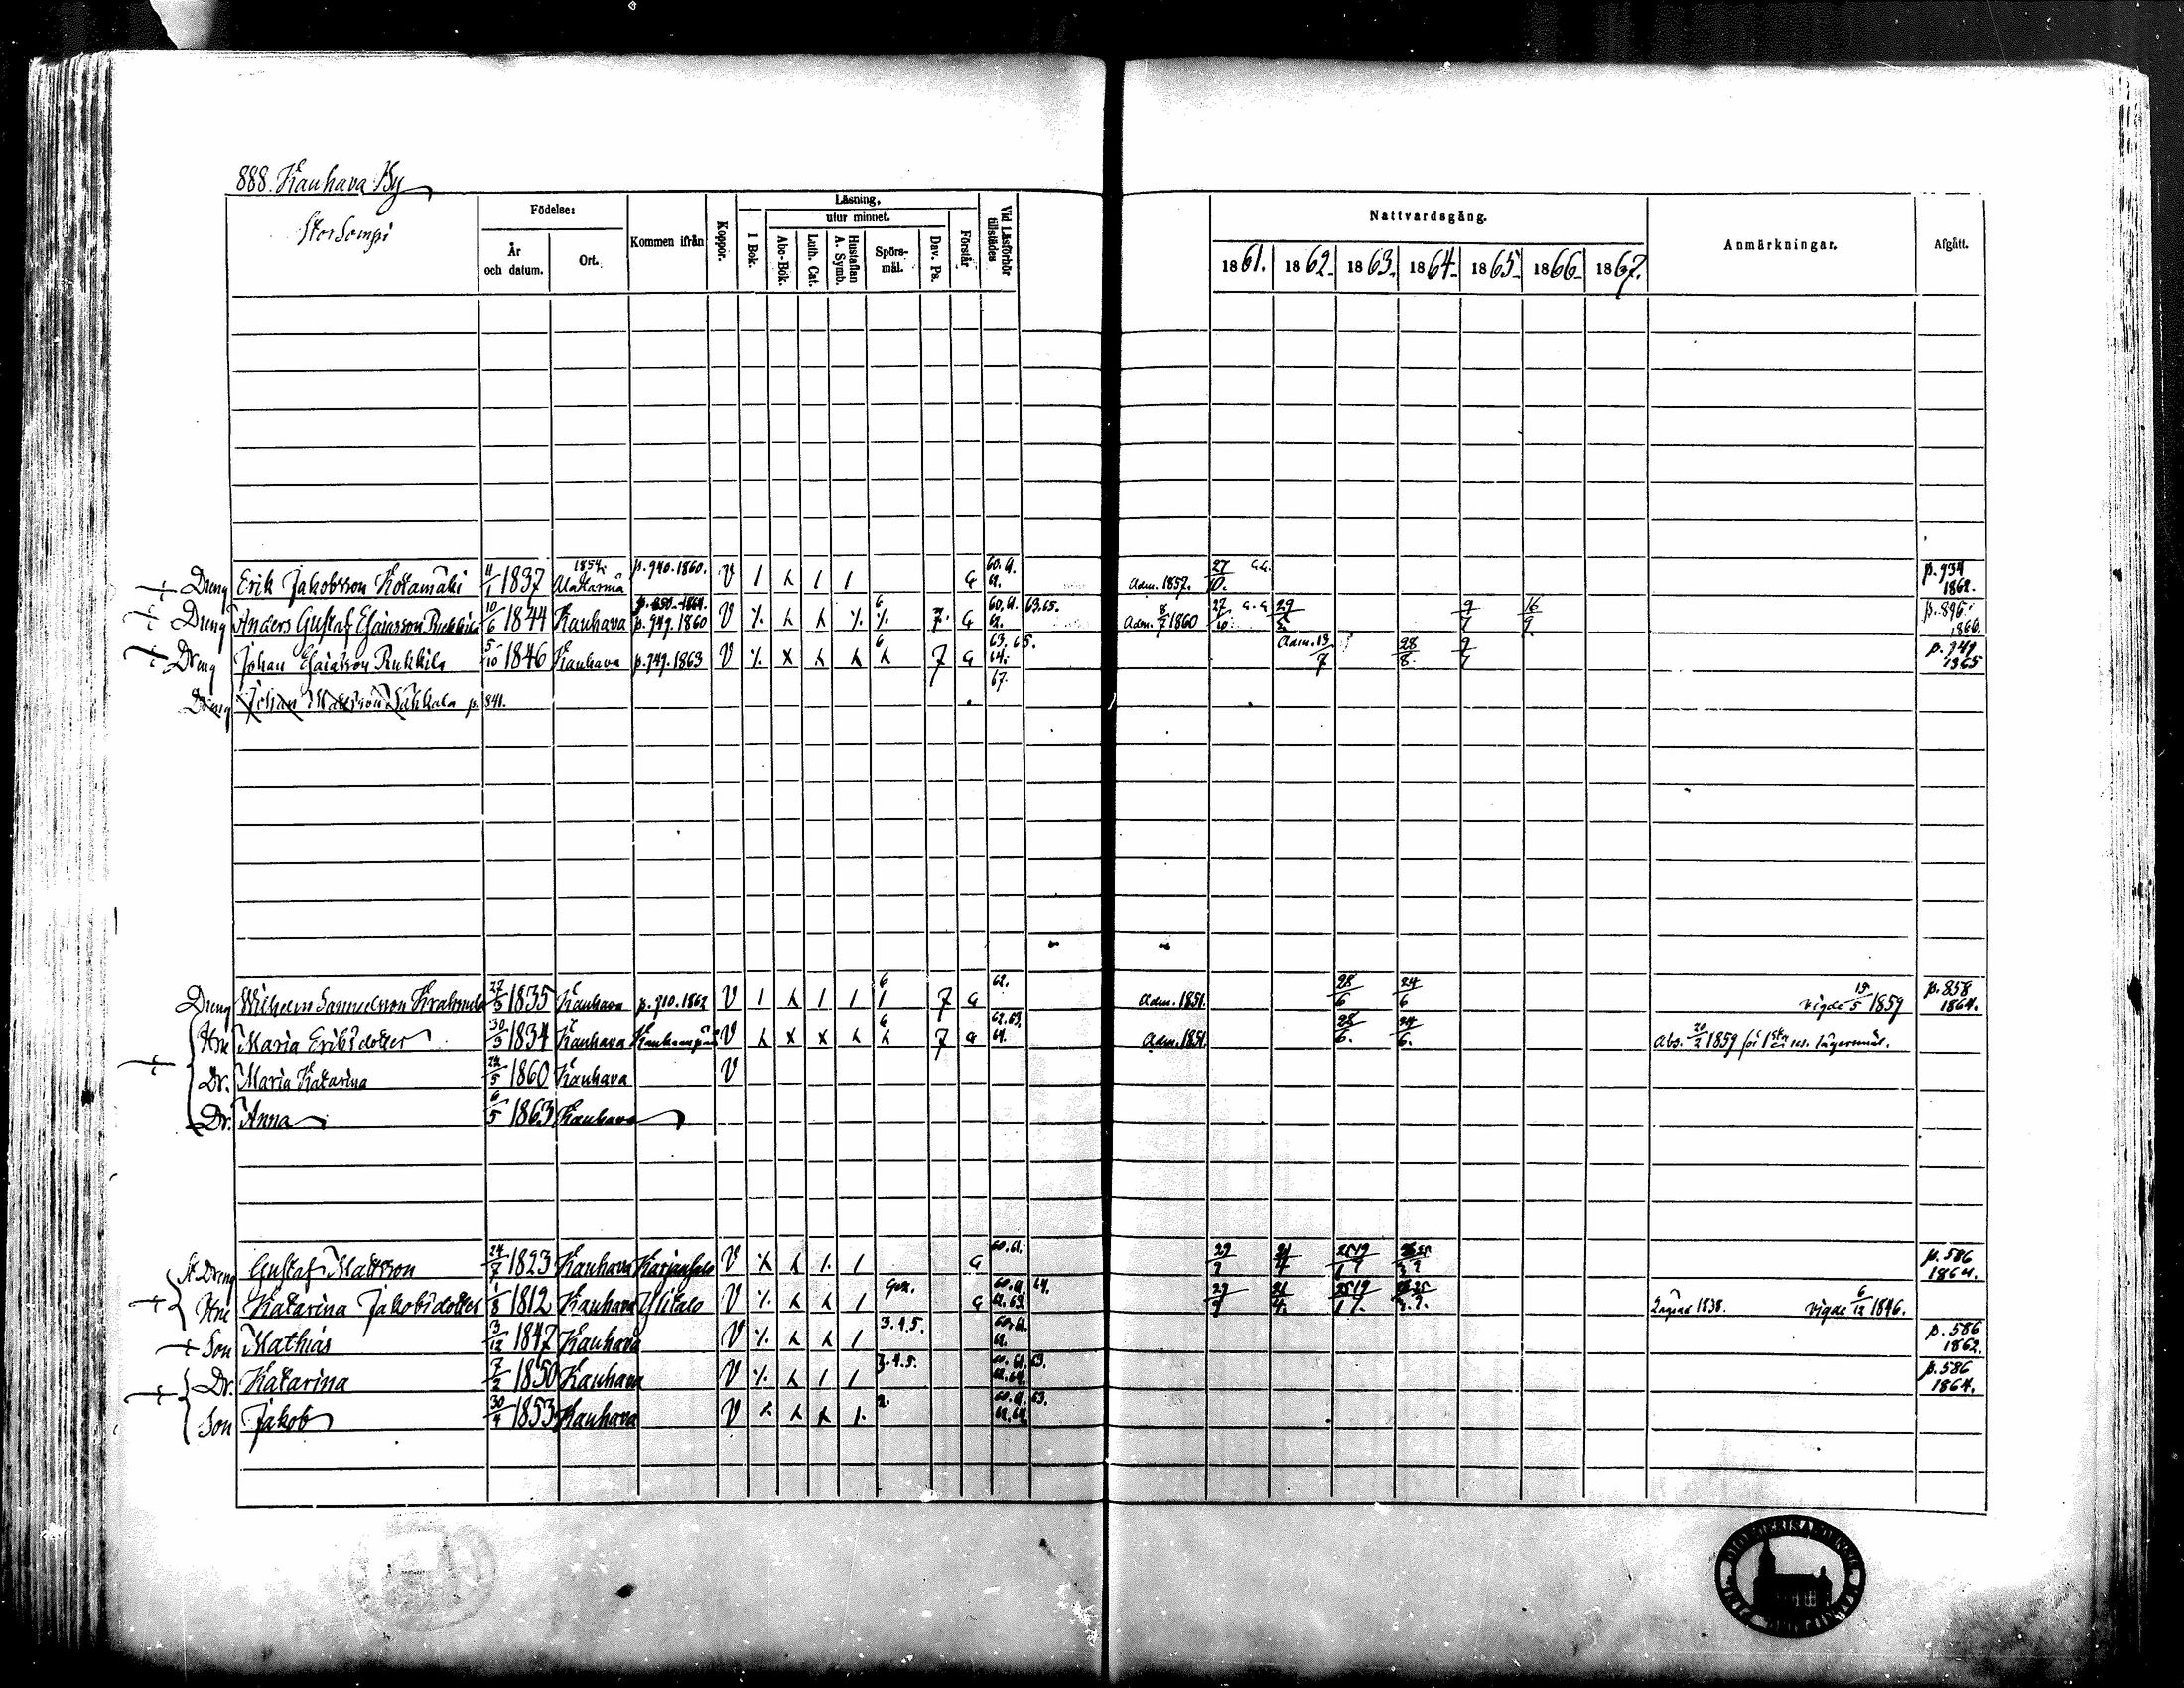 888. Kauhava By
Stor Sompi
Födelse:
År och datum.
Ort.
Kommen ifrån
Koppor.
Läsning,
utur minnet.
I Bok.
Abc-Bok.
Luth. Cat.
Hustaflan A. Symb.
Spörs-mål.
Dav. Ps.
Förstår
Vid Läsförhör tillstädes
Nattvardsgång.
1861. 1862. 1863. 1864. 1865. 1866. 1867.
Anmärkningar.
Afgått.
Dreng Erik Jakobsson Kotamäki 11/1 1837 1854 Alakärmä p. 940. 1860. V G 60. 61. 62. Adm. 1857. 27/10. p. 934 1862.
Dreng Anders Gustaf Esaiasson Rukkila 10/6 1844 Kauhava p. 749. 1860 V 6 7. G 60. 61. 62. 63. 65. Adm. 8/7 1860 27/10 29/5. 9/7 16/9. p. 896. 1866.
Dreng Johan Esaiasson Rukkila 5/10 1846 Kauhava p. 749. 1863 V 6 7 G 63. 65. 64. 67. Adm. 19/7 28/8. 9/7 p. 749 1865
Dreng Johan Mattsson p. 841.
Dreng Wilhelm Samuelsson 27/3 1835 Kauhava p. 710. 1862 V 6 7 G 62. Adm. 1851. 28/6 24/6 vigde 15/5 1859 p. 858 1864.
Hu Maria Eriksdotter 30/3 1834 Kauhava V 6 7 G 62. 63. 64. Adm. 1851. 28/6. 24/6. Abs. 20/2 1859 för 1sta lägersmål.
Dr. Maria Katarina 24/5 1860 Kauhava V
Dr. Anna 6/5 1863 Kauhava
Dreng Gustaf Mattsson 24/7 1823 Kauhava Karjanlaso V G 60. 61. 29/9 21/4 p. 586 1864.
Hu Katarina Jakobsdotter 1/8 1812 Kauhava Ylitalo V G 29/9 21/4. 1838. vigde 6/12 1846.
Son Mathias 13/12 1847 Kauhava V 3. 4. 5. 60. 61. 62. p. 586 1862.
Dr. Katarina 7/2 1850 Kauhava V 3. 4. 5. 60. 61. 63. 62. 64. p. 586 1864.
Son Jakob 30/4 1853 Kauhava V 2. 60. 61. 63. 62. 64.